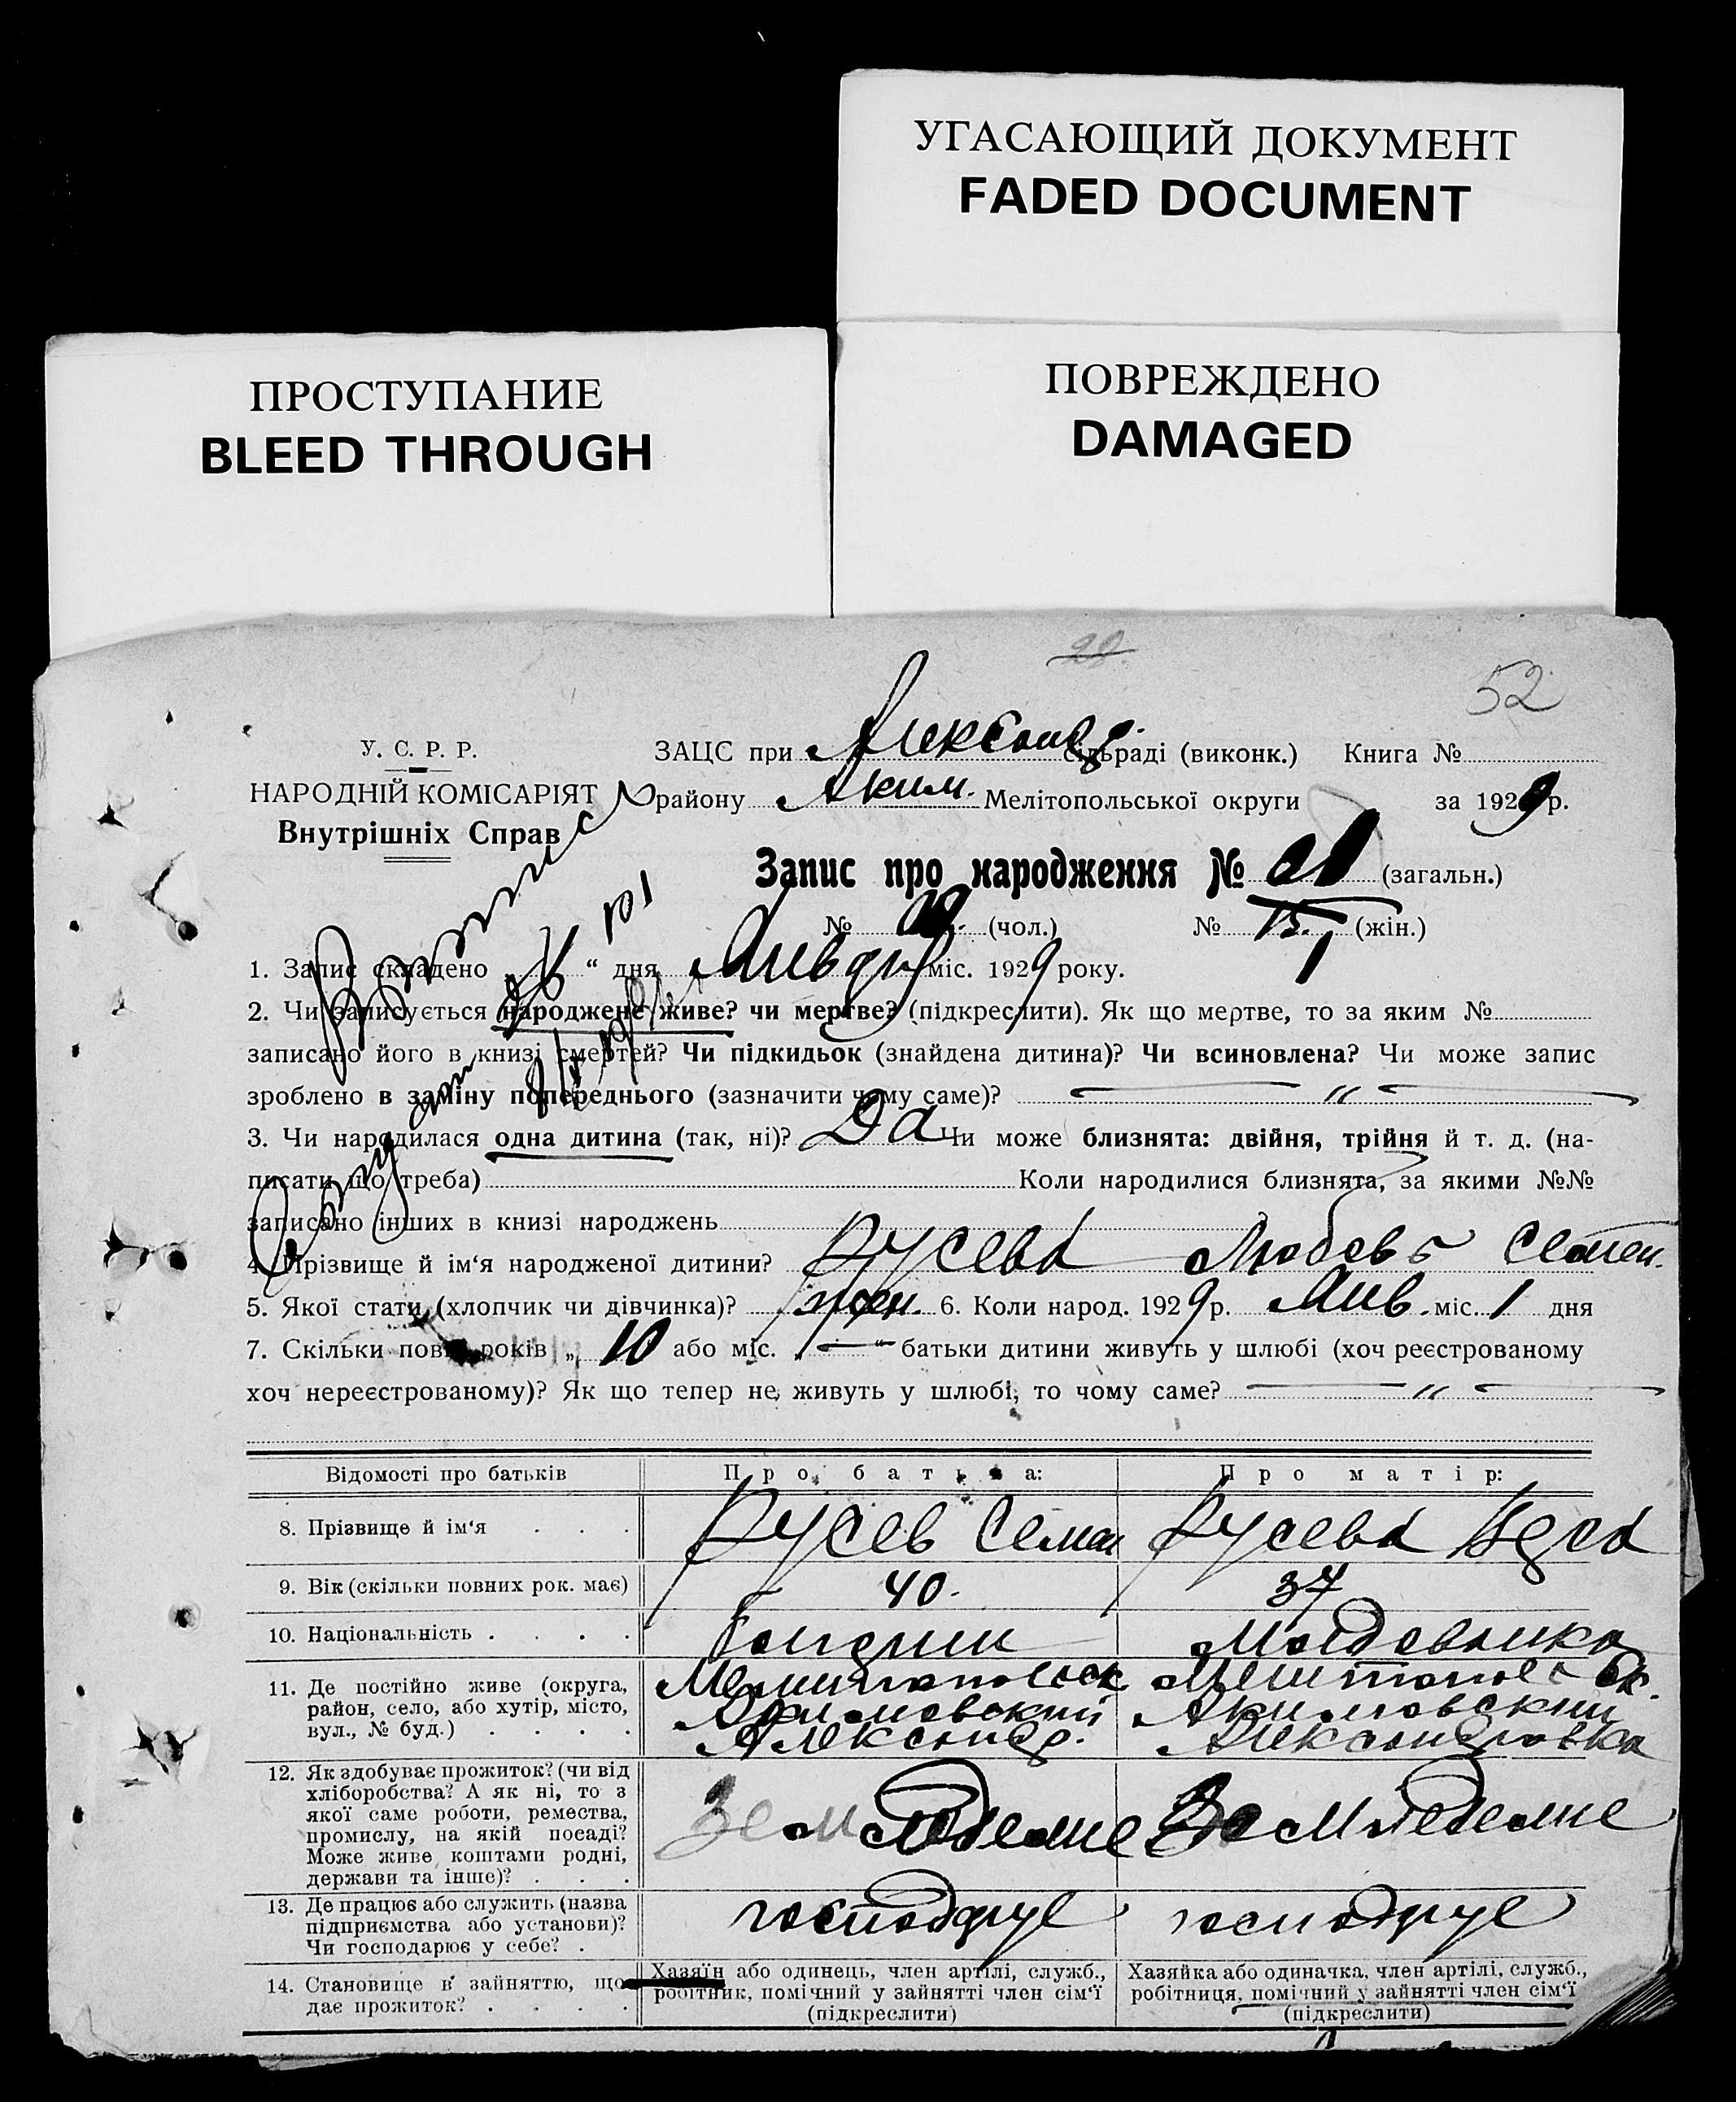 УГАСАЮЩИЙ ДОКУМЕНТ
FADED DOCUMENT
ПРОСТУПАНИЕ
BLEED THROUGH
ПОВРЕЖДЕНО
DAMAGED
52
У. С. Р. Р.
НАРОДНІЙ КОМІСАРІЯТ
Внутрішніх Справ
ЗАЦС при Александр. сільраді (виконк.) Книга №
району Аким. Мелітопольської округи за 1929 р.
Запис про народження № (загальн.)
№ (чол.) № 15. (жін.)
1. Запис складено „ “ дня Января міс. 1929 року.
2. Чи записується народжене живе? чи мертве? (підкреслити). Як що мертве, то за яким №
записано його в книзі смертей? Чи підкидьок (знайдена дитина)? Чи всиновлена? Чи може запис
зроблено в заміну попереднього (зазначити чому саме)? — „ —
3. Чи народилася одна дитина (так, ні)? Да Чи може близнята: двійня, трійня й т. д. (на-
писати що треба) Коли народилися близнята, за якими №№
записано інших в книзі народжень
4. Прізвище й ім‘я народженої дитини? Русева Любовь Семен.
5. Якої стати (хлопчик чи дівчинка)? жен. 6. Коли народ. 1929 р. Янв. міс. 1 дня
7. Скільки повн. років „ 10 або міс. „ — “ батьки дитини живуть у шлюбі (хоч реєстрованому
хоч нереєстрованому)? Як що тепер не живуть у шлюбі, то чому саме? — „ —
Відомості про батьків Про батька: Про матір:
8. Прізвище й ім‘я . . . Русев Семен Русева
9. Вік (скільки повних рок. має) 40. 37
10. Національність . . . . Болгарин Молдованка
11. Де постійно живе (округа,
район, село, або хутір, місто,
вул., № буд.) . . . .
Мелитопольск
Акимовский
Александр.
Мелитопольск Ок.
Акимовский
Александровка
12. Як здобуває прожиток? (чи від
хліборобства? А як ні, то з
якої саме роботи, ремества,
промислу, на якій посаді?
Може живе коштами родні,
держави та інше)? . . .
Земледелие Земледелие
13. Де працює або служить (назва
підприємства або установи)?
Чи господарює у себе? .
господарує господарує
14. Становище в зайняттю, що
дає прожиток? . . . .
Хазяїн або одинець, член артілі, служб.,
робітник, помічний у зайнятті член сім‘ї
(підкреслити)
Хазяйка або одиначка, член артілі, служб.,
робітниця, помічний у зайнятті член сім‘ї
(підкреслити)